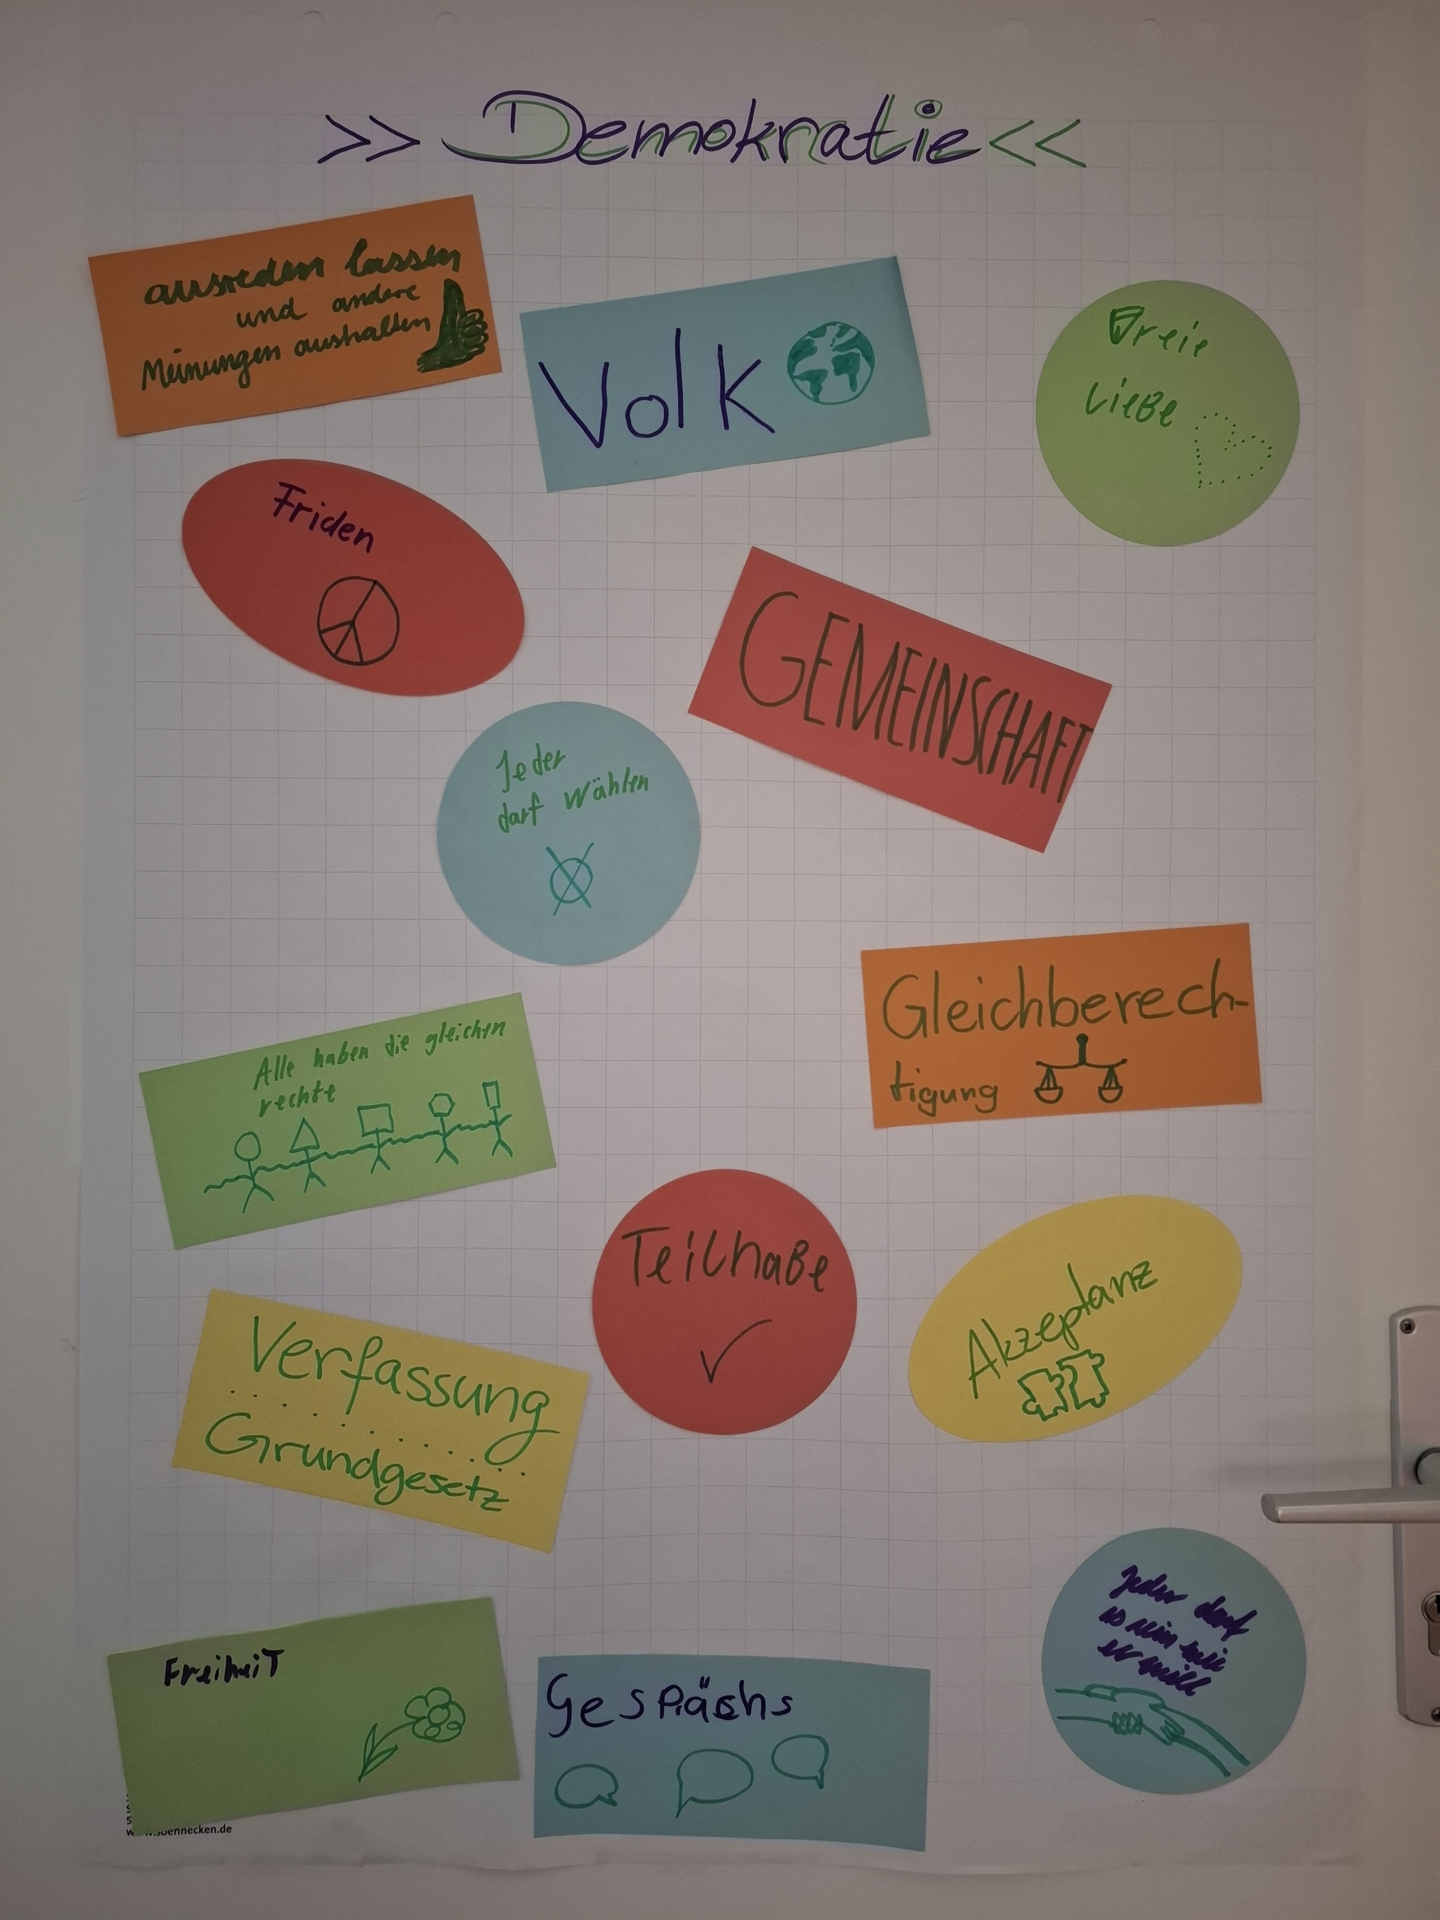 >> Demokratie <<
ausreden lassen
und andere
Meinungen aushalten
Volk
Freie
Liebe
Friden
GEMEINSCHAFT
Jeder
darf wählen
Gleichberech-
tigung
Alle haben die gleichen
rechte
Teilhabe
Akzeptanz
Verfassung
Grundgesetz
Jeder darf
so sein wie
er will
Freiheit
Gesprächs
www.soennecken.de